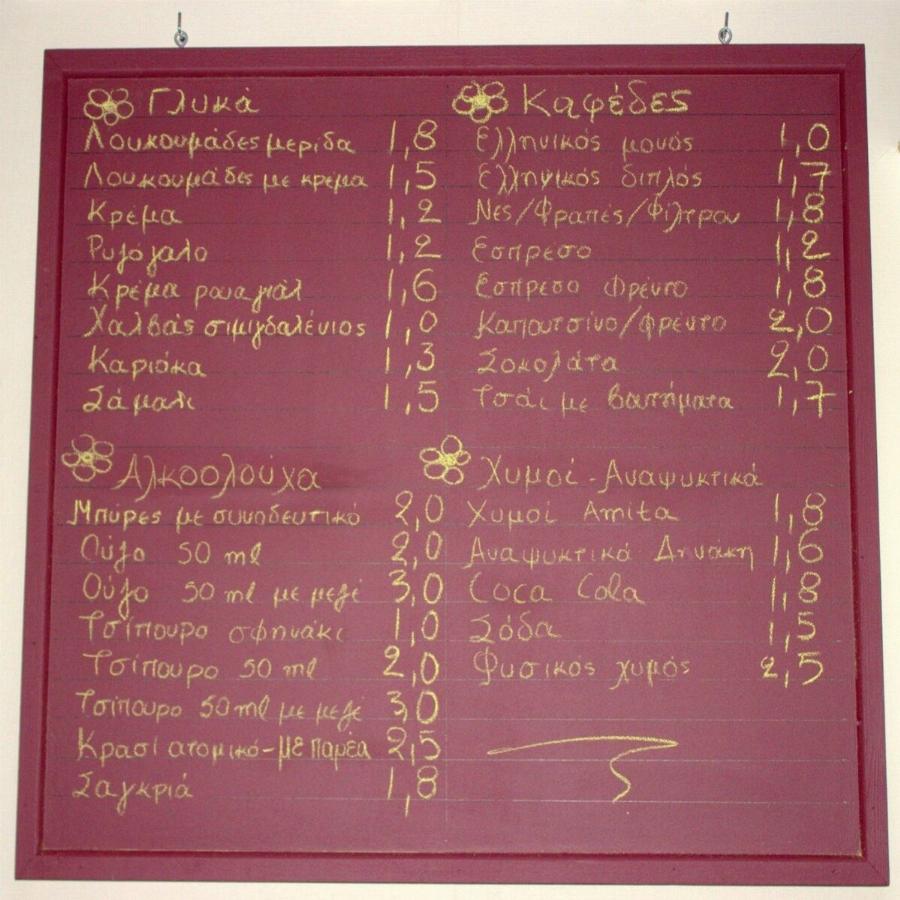 Γλυκά
Λουκουμάδες μερίδα 1,8
Λουκουμάδες με κρέμα 1,5
Κρέμα 1,2
Ρυζόγαλο 1,2
Κρέμα ρουαγιάλ 1,6
Χαλβάς σιμιγδαλένιος 1,0
Καριόκα 1,3
Σάμαλι 1,5
Αλκοολούχα
Μπύρες με συνοδευτικό 2,0
Ούζο 50 ml 2,0
Ούζο 50 ml με μεζέ 3,0
Τσίπουρο σφηνάκι 1,0
Τσίπουρο 50 ml 2,0
Τσίπουρο 50 ml με μεζέ 3,0
Κρασί ατομικό-με παρέα 2,5
Σαγκριά 1,8
Καφέδες
Ελληνικός μονός 1,0
Ελληνικός διπλός 1,7
Νες/Φραπές/Φίλτρου 1,8
Εσπρεσο 1,2
Εσπρεσο Φρέντο 1,8
Καπουτσίνο/φρέντο 2,0
Σοκολάτα 2,0
Τσάι με βουτήματα 1,7
Χυμοί - Αναψυκτικά
Χυμοί Amita 1,8
Αναψυκτικά 1,6
Coca Cola 1,8
Σόδα 1,5
Φυσικός χυμός 2,5